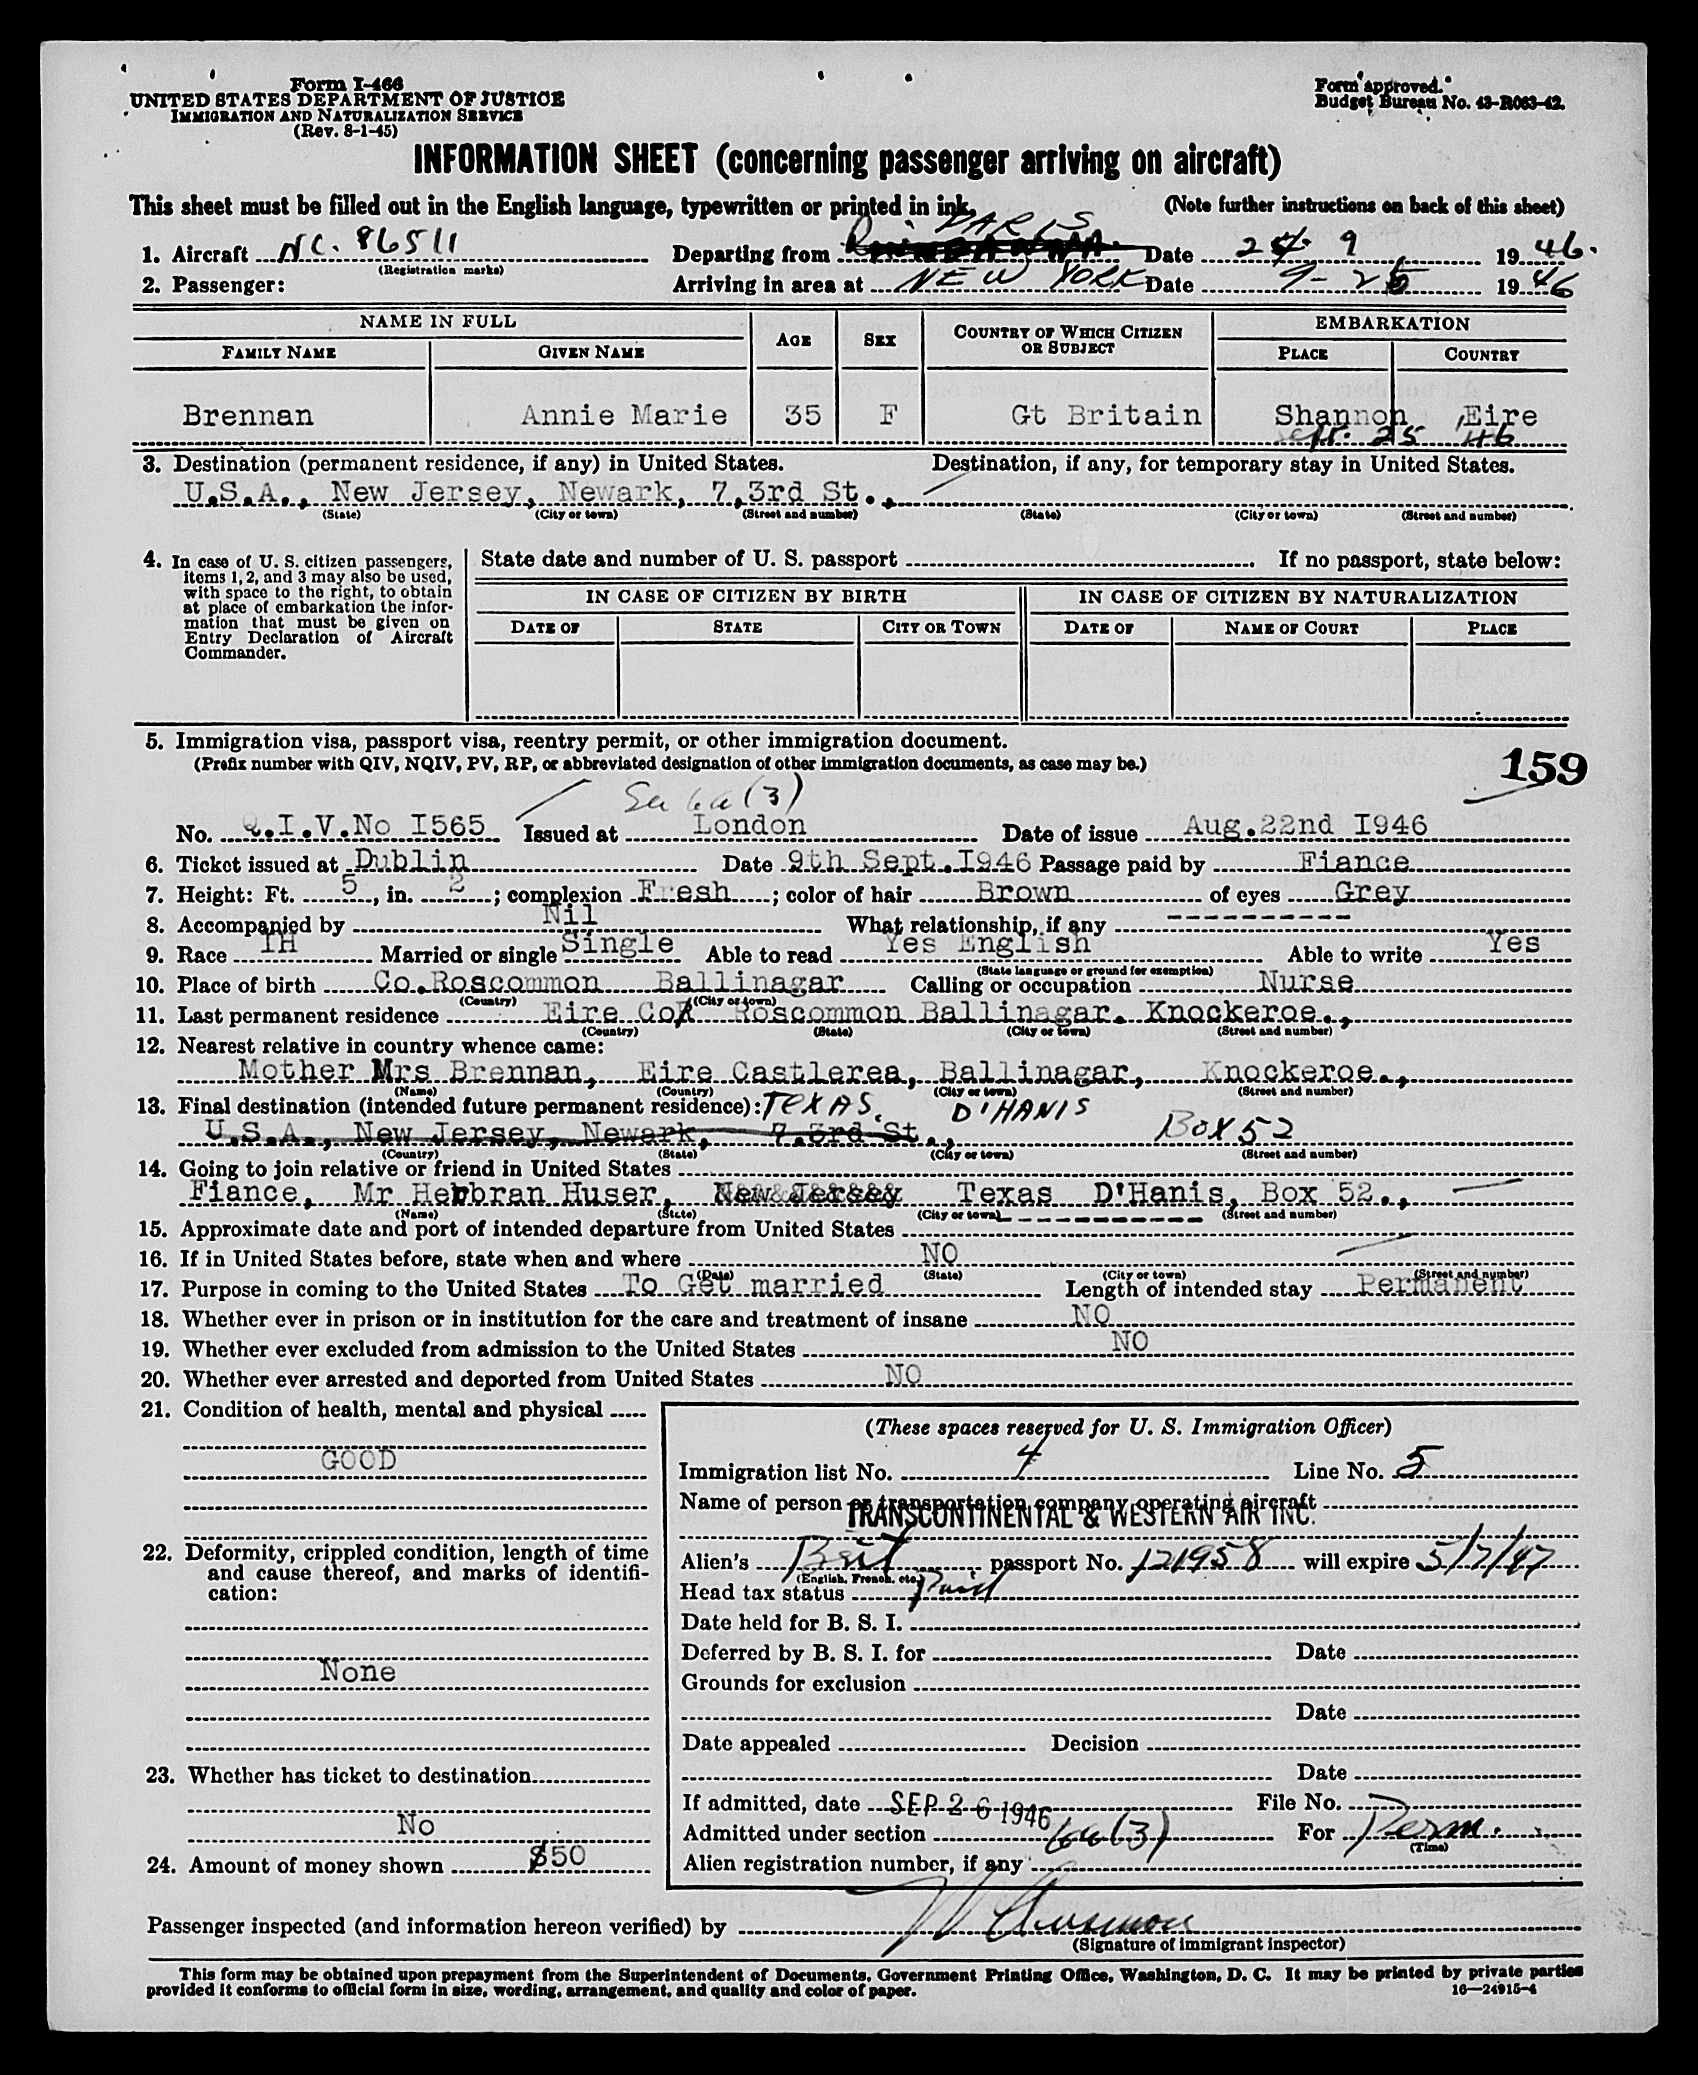 Form I-466
UNITED STATES DEPARTMENT OF JUSTICE
IMMIGRATION AND NATURALIZATION SERVICE
(Rev. 8-1-45)
Form approved.
Budget Bureau No. 43-R063-42.
INFORMATION SHEET (concerning passenger arriving on aircraft)
This sheet must be filled out in the English language, typewritten or printed in ink.
(Note further instructions on back of this sheet)
1. Aircraft NC. 86511 Departing from PARIS Date 24 9 1946.
(Registration marks)
2. Passenger: Arriving in area at NEW YORK Date 9-25 1946
NAME IN FULL AGE SEX COUNTRY OF WHICH CITIZEN OR SUBJECT EMBARKATION
FAMILY NAME GIVEN NAME PLACE COUNTRY
Brennan Annie Marie 35 F Gt Britain Shannon Eire
Sept. 25 46
3. Destination (permanent residence, if any) in United States. Destination, if any, for temporary stay in United States.
U.S.A., New Jersey, Newark, 7,3rd St.,
(State) (City or town) (Street and number) (State) (City or town) (Street and number)
4. In case of U. S. citizen passengers, items 1, 2, and 3 may also be used, with space to the right, to obtain at place of embarkation the information that must be given on Entry Declaration of Aircraft Commander.
State date and number of U. S. passport If no passport, state below:
IN CASE OF CITIZEN BY BIRTH IN CASE OF CITIZEN BY NATURALIZATION
DATE OF STATE CITY OR TOWN DATE OF NAME OF COURT PLACE
5. Immigration visa, passport visa, reentry permit, or other immigration document.
(Prefix number with QIV, NQIV, PV, RP, or abbreviated designation of other immigration documents, as case may be.)
159
Sec 6a(3)
No. Q.I.V.No I565 Issued at London Date of issue Aug.22nd I946
6. Ticket issued at Dublin Date 9th Sept.I946 Passage paid by Fiance
7. Height: Ft. 5, in. 2; complexion Fresh; color of hair Brown of eyes Grey
8. Accompanied by Nil What relationship, if any ----------
9. Race IH Married or single Single Able to read Yes English Able to write Yes
(State language or ground for exemption)
10. Place of birth Co.Roscommon Ballinagar Calling or occupation Nurse
(Country) (City or town)
11. Last permanent residence Eire Co Roscommon Ballinagar. Knockeroe.,
(Country) (State) (City or town) (Street and number)
12. Nearest relative in country whence came:
Mother Mrs Brennan, Eire Castlerea, Ballinagar, Knockeroe.,
(Name) (Country) (City or town) (Street and number)
13. Final destination (intended future permanent residence): TEXAS. D'HANIS
U.S.A., New Jersey, Newark, 7.3rd St., BOX 52
(Country) (State) (City or town) (Street and number)
14. Going to join relative or friend in United States
Fiance, Mr Herbran Huser, New Jersey Texas D'Hanis, Box 52.,
(Name) (State) (City or town) (Street and number)
15. Approximate date and port of intended departure from United States ----------
16. If in United States before, state when and where NO
(Date) (State) (City or town) (Street and number)
17. Purpose in coming to the United States To Get married Length of intended stay Permanent
18. Whether ever in prison or in institution for the care and treatment of insane NO
19. Whether ever excluded from admission to the United States NO
20. Whether ever arrested and deported from United States NO
21. Condition of health, mental and physical
GOOD
22. Deformity, crippled condition, length of time and cause thereof, and marks of identification:
None
23. Whether has ticket to destination
No
24. Amount of money shown $50
(These spaces reserved for U. S. Immigration Officer)
Immigration list No. 4 Line No. 5
Name of person or transportation company operating aircraft
TRANSCONTINENTAL & WESTERN AIR INC.
Alien's Brit passport No. 121958 will expire 5/7/47
(English, French, etc.)
Head tax status Paid
Date held for B. S. I.
Deferred by B. S. I. for Date
Grounds for exclusion
Date
Date appealed Decision
Date
If admitted, date SEP 26 1946 File No.
Admitted under section 6a(3) For Perm.
(Time)
Alien registration number, if any
Passenger inspected (and information hereon verified) by
(Signature of immigrant inspector)
This form may be obtained upon prepayment from the Superintendent of Documents, Government Printing Office, Washington, D. C. It may be printed by private parties
provided it conforms to official form in size, wording, arrangement, and quality and color of paper.
16—24915-4